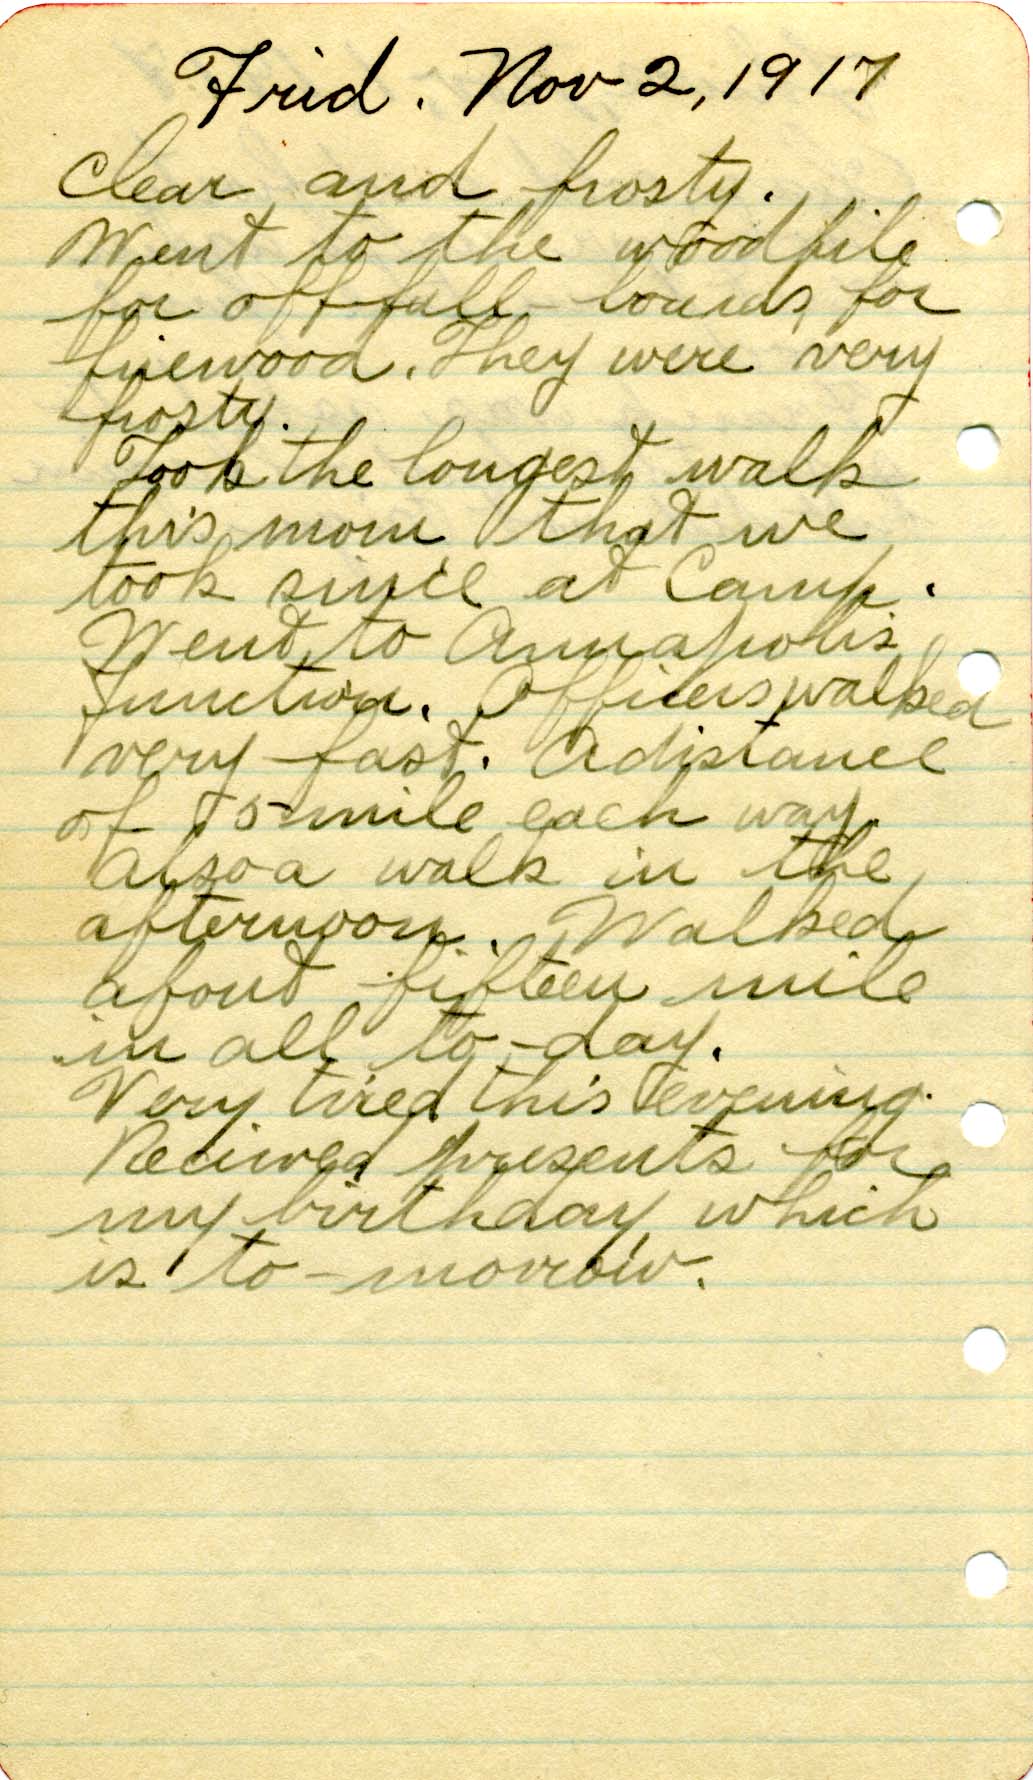 Frid. Nov 2, 1917
Clear and frosty.
Went to the woodpile
for off fall boards for
firewood. They were very
frosty.
Took the longest walk
this morn that we
took since at Camp.
Went to Annapolis
Junction. Officers walked
very fast. A distance
of 5 mile each way.
Also a walk in the
afternoon. Walked
about fifteen mile
in all to-day.
Very tired this evening.
Recieved presents for
my birthday which
is to-morrow.